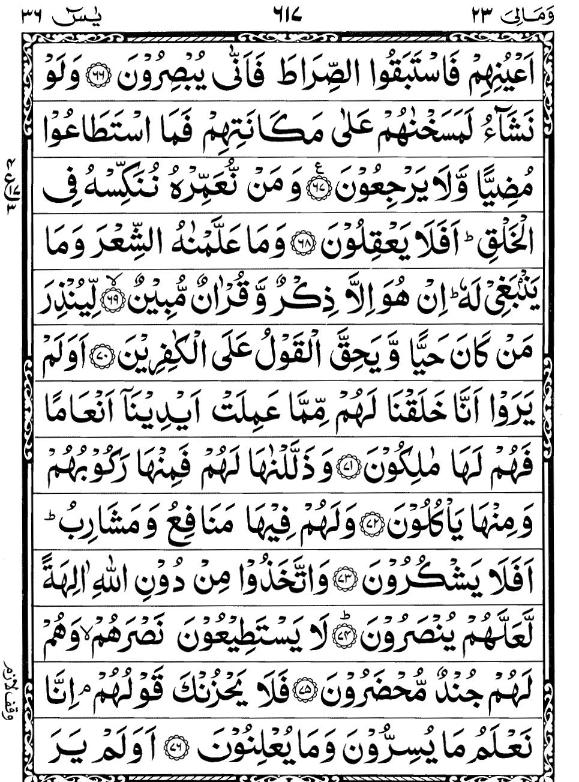 وَمَالِیَ ٢٣ ٦١٧ یٰسٓ ٣٦
اَعْیُنِهِمْ فَاسْتَبَقُوا الصِّرَاطَ فَاَنّٰی یُبْصِرُوْنَ ﴿٦٦﴾ وَلَوْ
نَشَآءُ لَمَسَخْنٰهُمْ عَلٰی مَكَانَتِهِمْ فَمَا اسْتَطَاعُوْا
مُضِیًّا وَّلَا یَرْجِعُوْنَ ﴿٦٧﴾ۧ وَ مَنْ نُّعَمِّرْهُ نُنَكِّسْهُ فِی
الْخَلْقِ ؕ اَفَلَا یَعْقِلُوْنَ ﴿٦٨﴾ وَمَا عَلَّمْنٰهُ الشِّعْرَ وَمَا
یَنْۢبَغِیْ لَهٗ ؕ اِنْ هُوَ اِلَّا ذِكْرٌ وَّ قُرْاٰنٌ مُّبِیْنٌ ﴿٦٩﴾ۙ لِّیُنْذِرَ
مَنْ كَانَ حَیًّا وَّ یَحِقَّ الْقَوْلُ عَلَی الْكٰفِرِیْنَ ﴿٧٠﴾ اَوَلَمْ
یَرَوْا اَنَّا خَلَقْنَا لَهُمْ مِّمَّا عَمِلَتْ اَیْدِیْنَاۤ اَنْعَامًا
فَهُمْ لَهَا مٰلِكُوْنَ ﴿٧١﴾ وَ ذَلَّلْنٰهَا لَهُمْ فَمِنْهَا رَكُوْبُهُمْ
وَمِنْهَا یَاْكُلُوْنَ ﴿٧٢﴾ وَلَهُمْ فِیْهَا مَنَافِعُ وَمَشَارِبُ ؕ
اَفَلَا یَشْكُرُوْنَ ﴿٧٣﴾ وَاتَّخَذُوْا مِنْ دُوْنِ اللّٰهِ اٰلِهَةً
لَّعَلَّهُمْ یُنْصَرُوْنَ ﴿٧٤﴾ؕ لَا یَسْتَطِیْعُوْنَ نَصْرَهُمْ ۙ وَهُمْ
لَهُمْ جُنْدٌ مُّحْضَرُوْنَ ﴿٧٥﴾ فَلَا یَحْزُنْكَ قَوْلُهُمْ ۘ اِنَّا
نَعْلَمُ مَا یُسِرُّوْنَ وَمَا یُعْلِنُوْنَ ﴿٧٦﴾ اَوَلَمْ یَرَ
وقف لازم